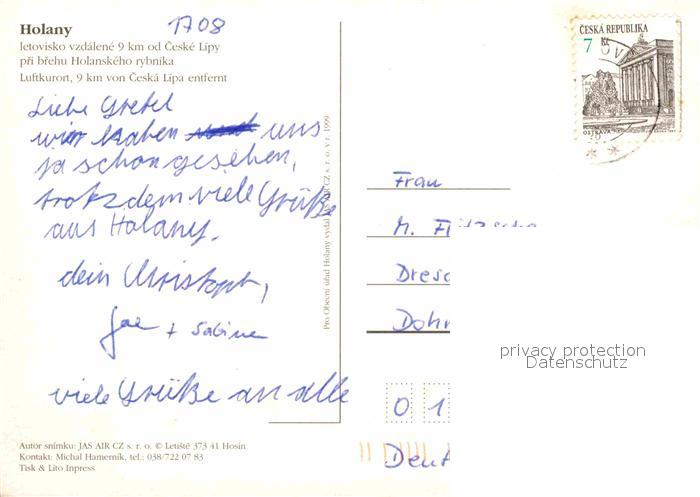 1708
Holany
letovisko vzdálené 9 km od České Lípy
při břehu Holanského rybníka
Luftkurort, 9 km von Česká Lípa entfernt
Liebe Gretel
wir haben uns
ja schon gesehen,
trotzdem viele Grüße
aus Holany.
dein Christoph,
+ Sabine
viele Grüße an alle
Autor snímku: JAS AIR CZ s. r. o. © Letiště 373 41 Hosín
Kontakt: Michal Hamerník, tel.: 038/722 07 83
Tisk & Lito Inpress
Pro Obecní úřad Holany vydal JAS AIR CZ s. r. o. v r. 1999
ČESKÁ REPUBLIKA
7 Kč
OSTRAVA
Frau
M. Fritzsche
Dresd
Dohn
0 1
Deut
privacy protection
Datenschutz